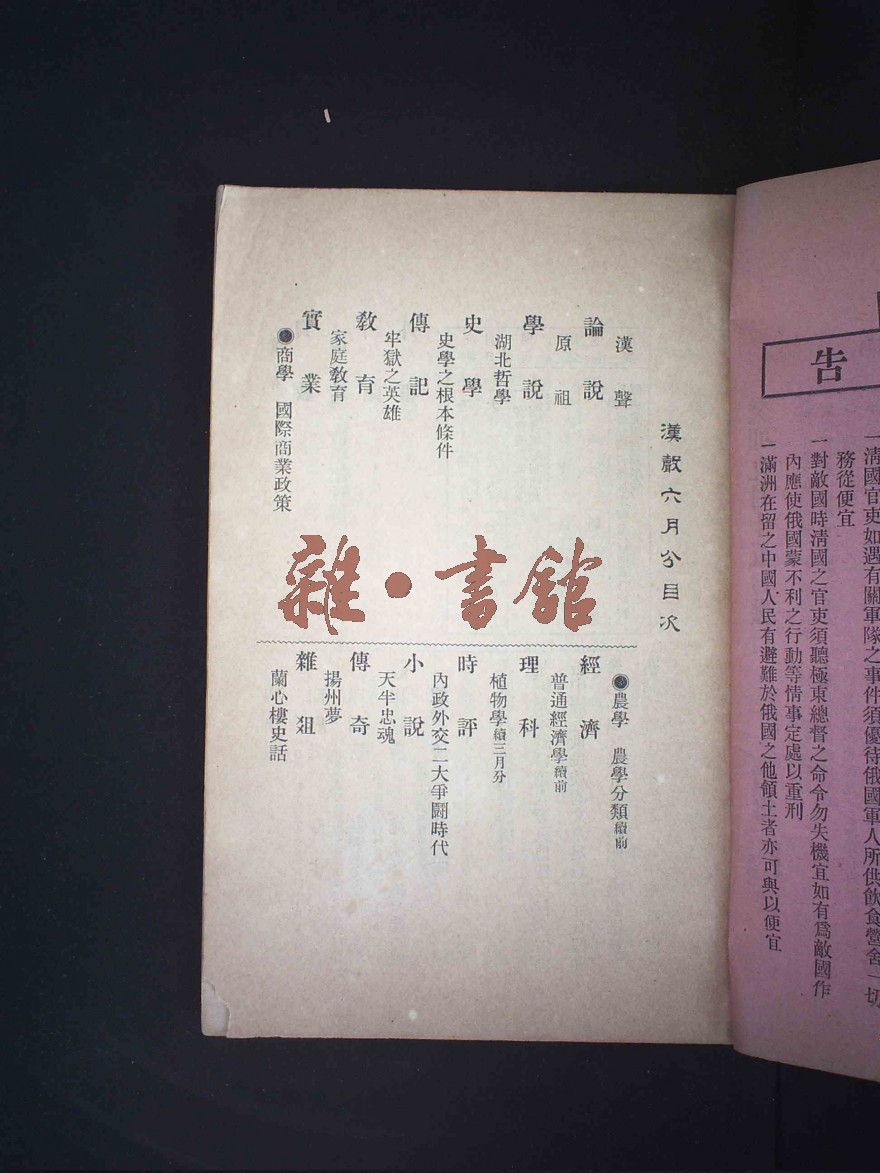 告
一清國官吏如遇有關軍隊之事件須優待俄國軍人所供飲食營舍一切
務從便宜
一對敵國時清國之官吏須聽極東總督之命令勿失機宜如有爲敵國作
內應使俄國蒙不利之行動等情事定處以重刑
一滿洲在留之中國人民有避難於俄國之他領土者亦可與以便宜
漢聲六月分目次
漢聲
論說
原祖
學說
湖北哲學
史學
史學之根本條件
傳記
牢獄之英雄
教育
家庭教育
實業
●商學 國際商業政策
●農學 農學分類續前
經濟
普通經濟學續前
理科
植物學續三月分
時評
內政外交二大爭鬪時代
小說
天半忠魂
傳奇
揚州夢
雜俎
蘭心樓史話
雜·書館